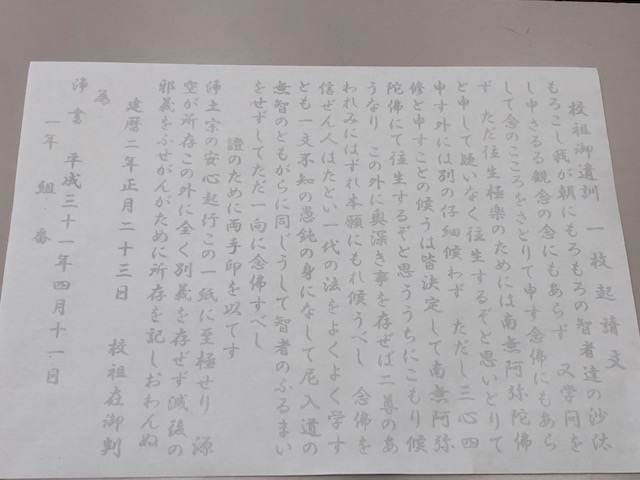 校祖御遺訓 一枚起請文
もろこし我が朝にもろもろの智者達の沙汰
し申さるる観念の念にもあらず 又学問を
して念のこころをさとりて申す念佛にもあら
ず ただ往生極楽のためには南無阿弥陀佛
と申して疑いなく往生するぞと思いとりて
申す外には別の仔細候わず ただし三心四
修と申すことの候うは皆決定して南無阿弥
陀佛にて往生するぞと思ううちにこもり候
うなり この外に奥深き事を存ぜば二尊のあ
われみにはずれ本願にもれ候うべし 念佛を
信ぜん人はたとい一代の法をよくよく学す
とも一文不知の愚鈍の身になして尼入道の
無智のともがらに同じうして智者のふるまい
をせずしてただ一向に念佛すべし
證のために両手印を以てす
浄土宗の安心起行この一紙に至極せり 源
空が所存この外に全く別義を存ぜず滅後の
邪義をふせがんがために所存を記しおわんぬ
建暦二年正月二十三日 校祖在御判
為
浄書 平成三十一年四月十一日
一年 組 番